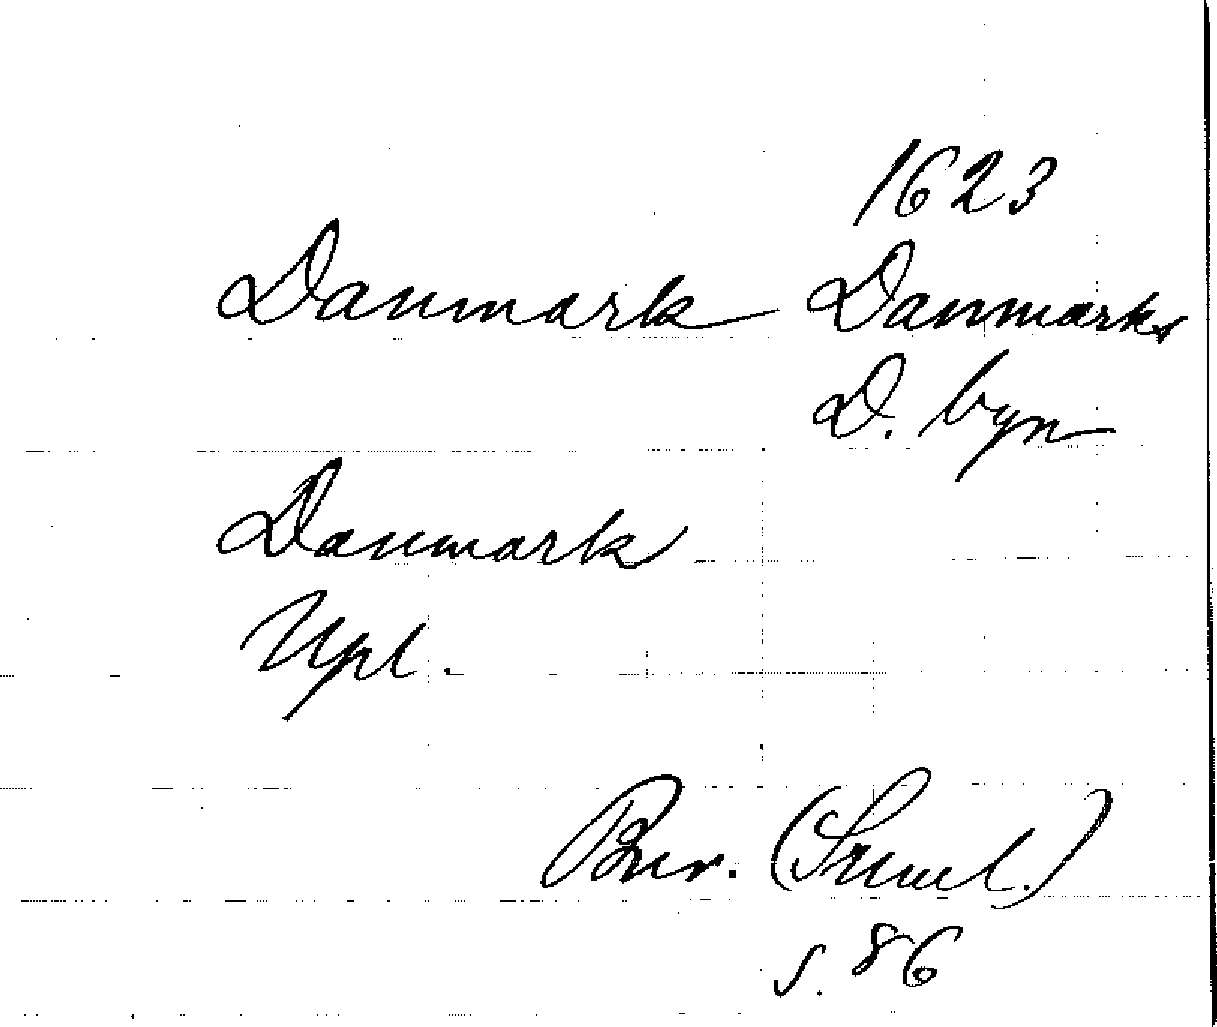 1623
Danmark Danmarks
D. byn
Danmark
Upl.
Bur. (Suml.)
s. 86